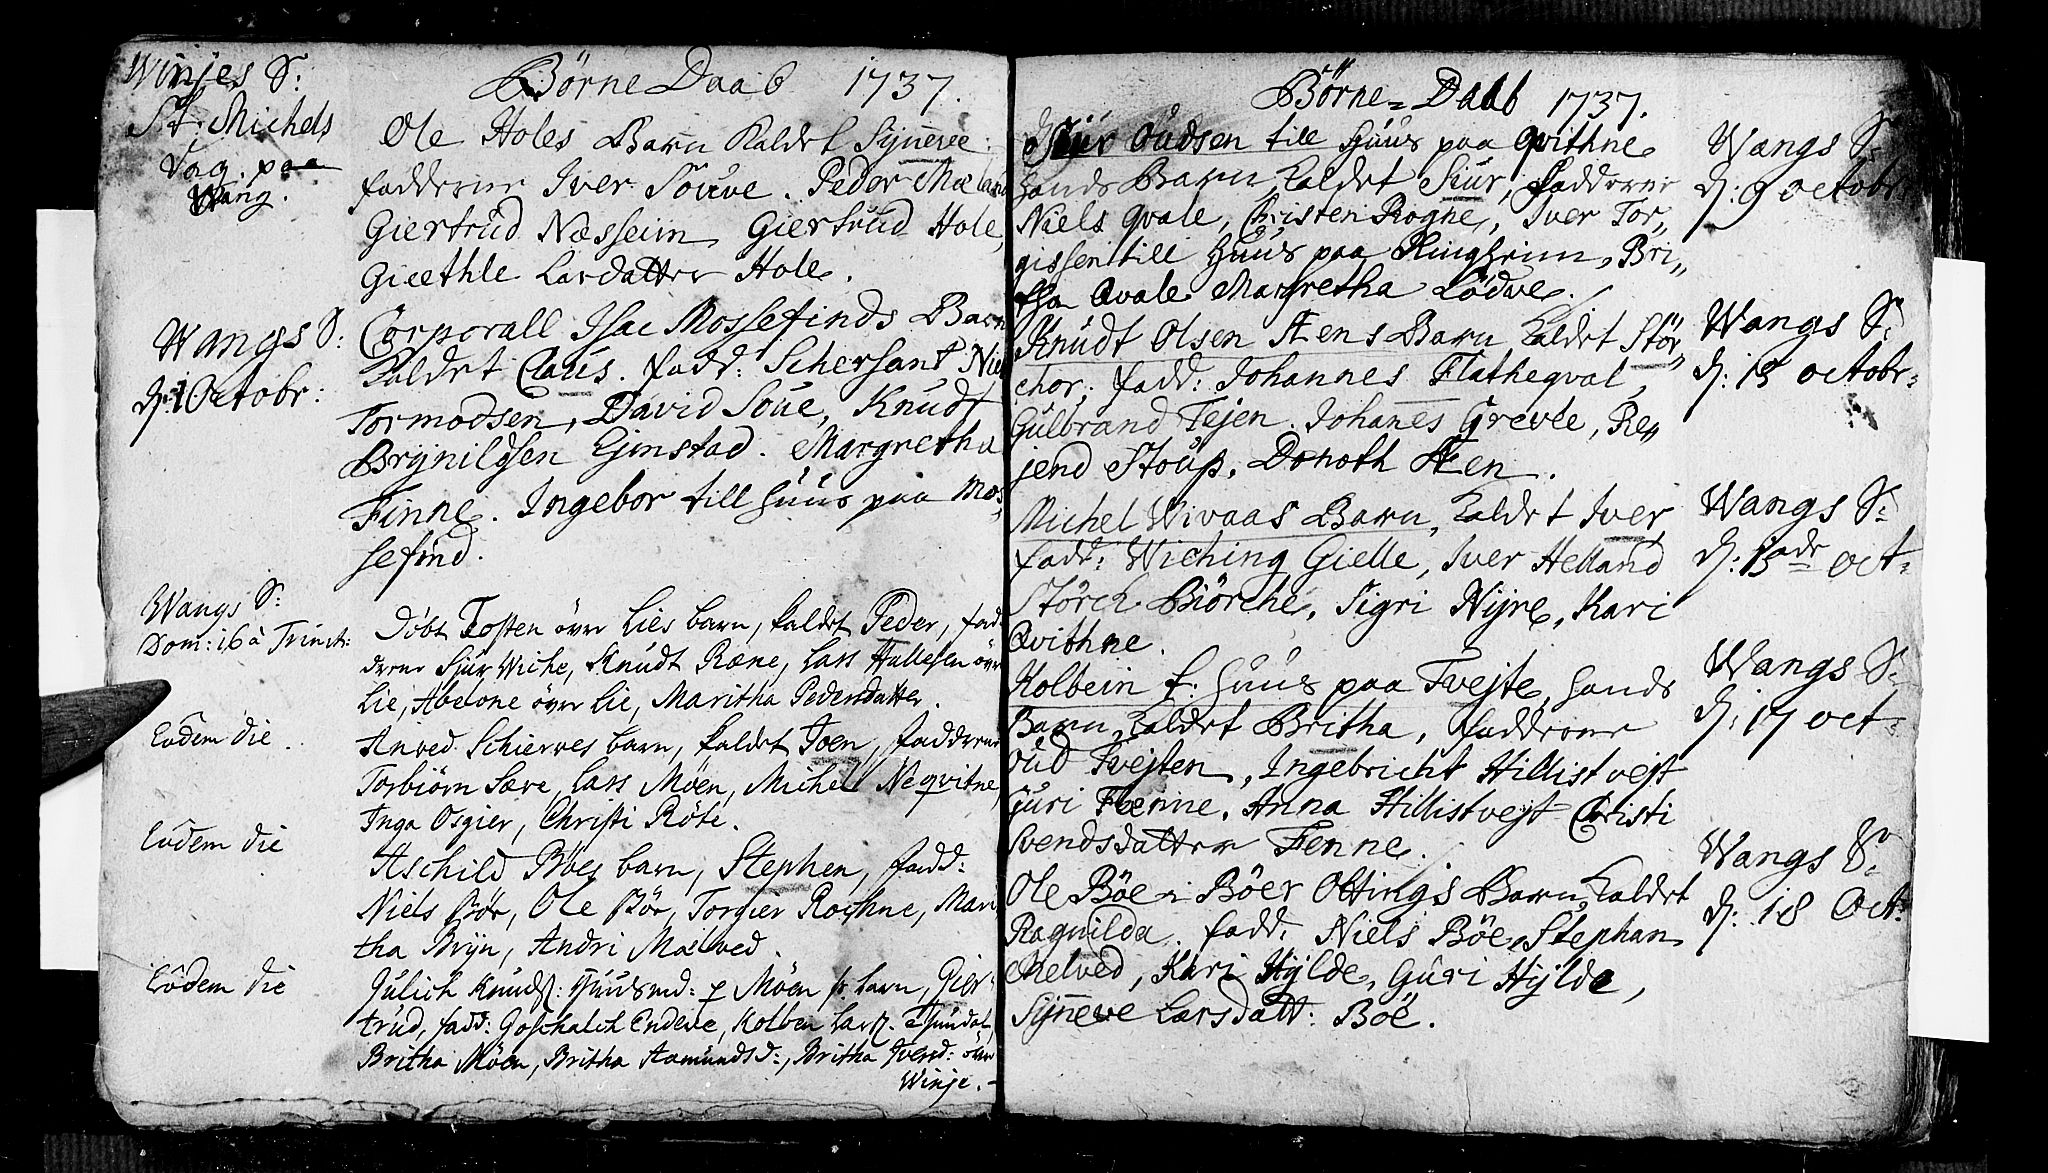 Winjes S:
St. Michels
Dag paa
Wang.
Børne Daab 1737.
Ole Holes Barn Kaldet Synneve.
fadderne Iver Souve. Peder Mæland
Giertrud Næsseim, Giertrud Hole,
Giæthle Larsdatter Hole.
Wangs S:
d: 1 Octobr:
Corporall Isac Mossefinds Barn
Kaldet Claus. fadd: Schersant Niels
Tormodsen, David Soue, Knudt
Brynildsen Ejmstad. Margretha
Finne. Ingebor till Huus paa Mos,,
sefind.
Wangs S:
Dom: 16 à Trinit:
Døbt Tosten øvre Lies barn, kaldet Peder, fad-
derne Sjur Wiche, Knudt Ræne, Lars Hallesen øvre
Lie, Abelone øvre Lie, Maritha Pedersdatter.
Eodem die.
Anved Schierves barn, kaldet Joen, fadderne
Torbiørn Sære, Lars Møen, Michel Neqvitne,
Inga Osgier, Christi Røte.
Eodem die
Aschild Bøes barn, Stephen, fadd:
Niels Bør, Ole Bør, Torgier Rochne, Mari
tha Bryn, Andri Mælved.
Eodem die
Julich Knuds: Huusmd: p Møen barn, Gier-
trud, fadd: Goschalch Endeve, Kolben Lars.
Britha Møen, Britha Aamundsd:, Britha Iversd: øvre
Winje.
Børne=Daab 1737.
Siur Oudsen till Huus paa Qvithne
hands Barn Kaldet Siur, fadderne
Niels Qvale, Christen Rogne, Iver Tor,,
gissen till Huus paa Ringheim, Bri,,
tha Qvale Margretha Lødve.
Wangs S:
d: 9 octobr:
Knudt Olsen Stens Barn Kaldet Stör,,
chor. fadd: Johannes Flatheqval,
Gulbrand Tejen. Johanes Grevle, Re,,
jend Stoup. Doroth Sten.
Wangs S:
d: 13 octobr=
Michel Wivaas Barn, Kaldet Iver,
fadd: Wiching Gielle, Iver Helland
Störch Biörche, Sigri Nyre, Kari
Qvithne.
Wangs S:
d: 13 oct=
Kolbein f: Huus paa Tvejte, hands
Barn Kaldet Britha, fadderne
Oud Tvejten, Ingebricht Hillistvejt
Guri Fenne, Anna Hillistvejt Christi
Svendsdatter Fenne.
Wangs S:
d: 17 oct=
Ole Böe i Böer Ottings Barn Kaldet
Ragnilda. fadd: Niels Böe, Stephan
Melved, Kari Hylde, Guri Hylde,
Synneve Larsdatt: Böe.
Wangs S:
d: 18 Oct: